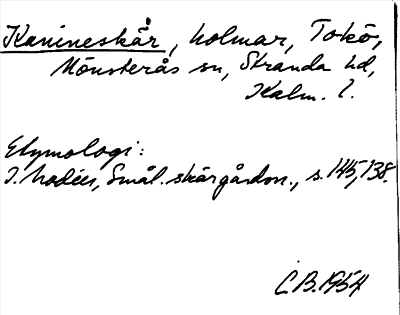 Kanineskår, holmar, Tokö,
Mönsterås sn, Stranda hd,
Kalm. l.
Etymologi:
I. Modéer, Smål. skärgårdsn., s. 145, 138.
C.B. 1954